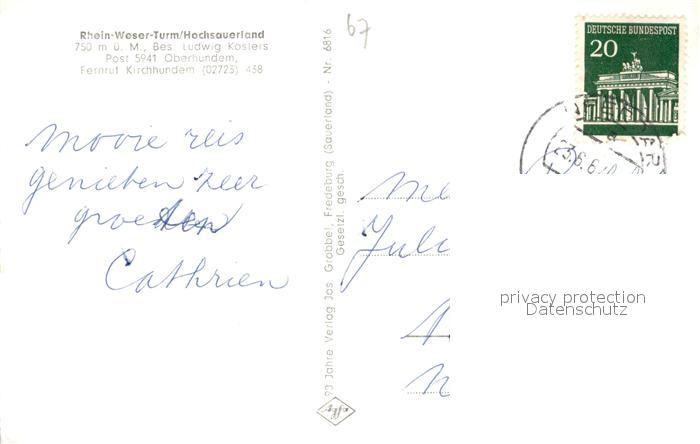 Rhein-Weser-Turm/Hochsauerland
750 m ü. M., Bes. Ludwig Kosters
Post 5941 Oberhundem,
Fernruf Kirchhundem (02723) 438
67
Mooie reis
genieben zeer
groeten
Cathrien
93 Jahre Verlag Jos. Grobbel, Fredeburg (Sauerland) - Nr. 6816
Gesetzl. gesch.
Agfa
DEUTSCHE BUNDESPOST
20
23.6.6
Me
Juli
N
privacy protection
Datenschutz